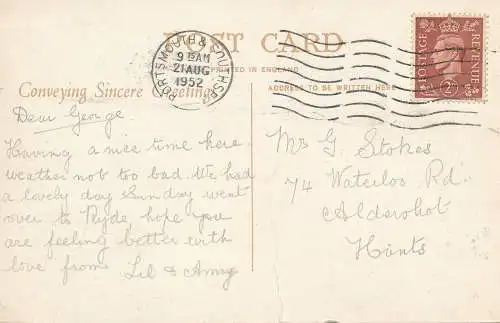 POST CARD
PRINTED IN ENGLAND
PORTSMOUTH & SOUTHSEA
9 15AM
21 AUG
1952
POSTAGE REVENUE
2D
Conveying Sincere Greetings
ADDRESS TO BE WRITTEN HERE
Dear George
Having a nice time here
weather not too bad. We had
a lovely day Sunday went
over to Ryde hope you
are feeling better with
love from Lil & Amy
Mr G. Stokes
74 Waterloo Rd.
Aldershot
Hants